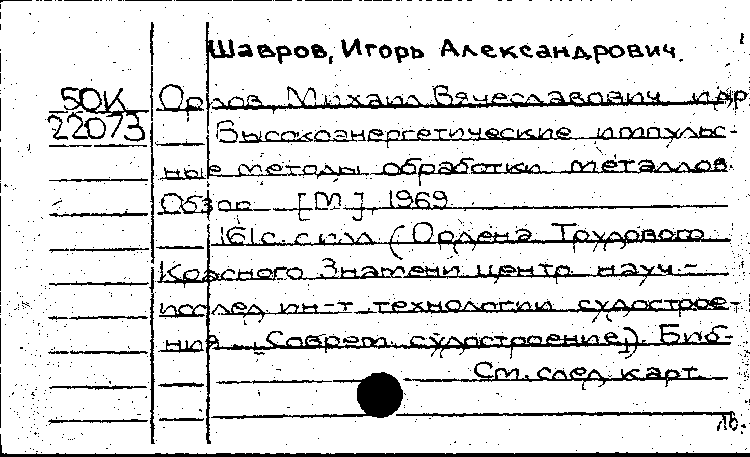 Шавров, Игорь Александрович.
50К Орлов, Михаил Вячеславович и др
22073 Высокоэнергетические импульс-
ные методы обработки металлов.
Обзор [М.], 1969
161 с. с илл (Ордена Трудового
Красного Знамени центр науч.-
исслед ин-т технологии судострое-
ния. „Соврем. судостроение"). Биб-
См. след карт
лб.